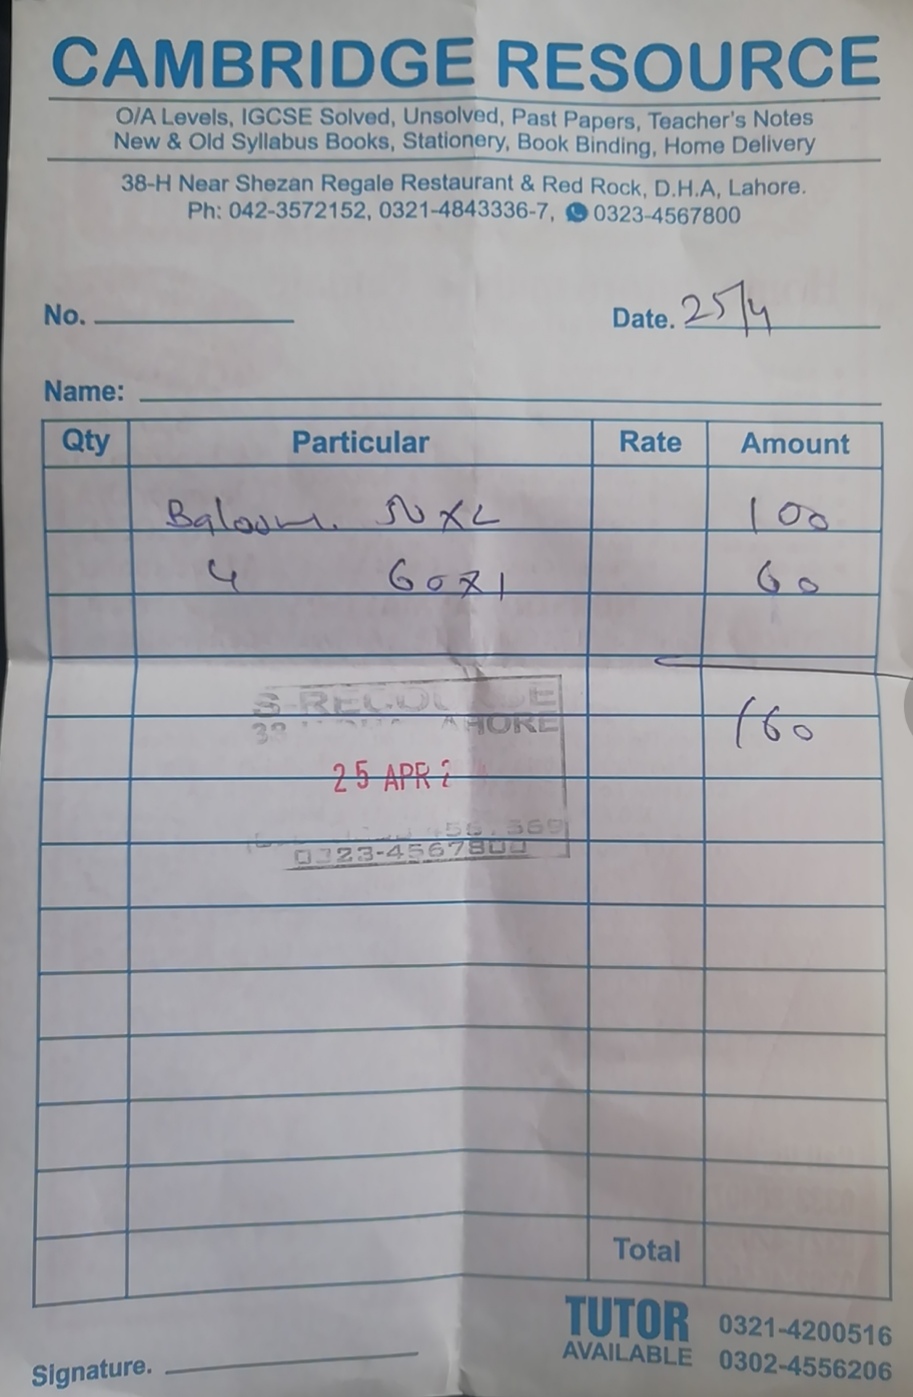 CAMBRIDGE RESOURCE
O/A Levels, IGCSE Solved, Unsolved, Past Papers, Teacher's Notes
New & Old Syllabus Books, Stationery, Book Binding, Home Delivery
38-H Near Shezan Regale Restaurant & Red Rock, D.H.A, Lahore.
Ph: 042-3572152, 0321-4843336-7, 0323-4567800
No. Date. 25/4
Name:
Qty Particular Rate Amount
100
4 60x1 60
160
25 APR
0323-4567800
Total
TUTOR 0321-4200516
AVAILABLE 0302-4556206
Signature.